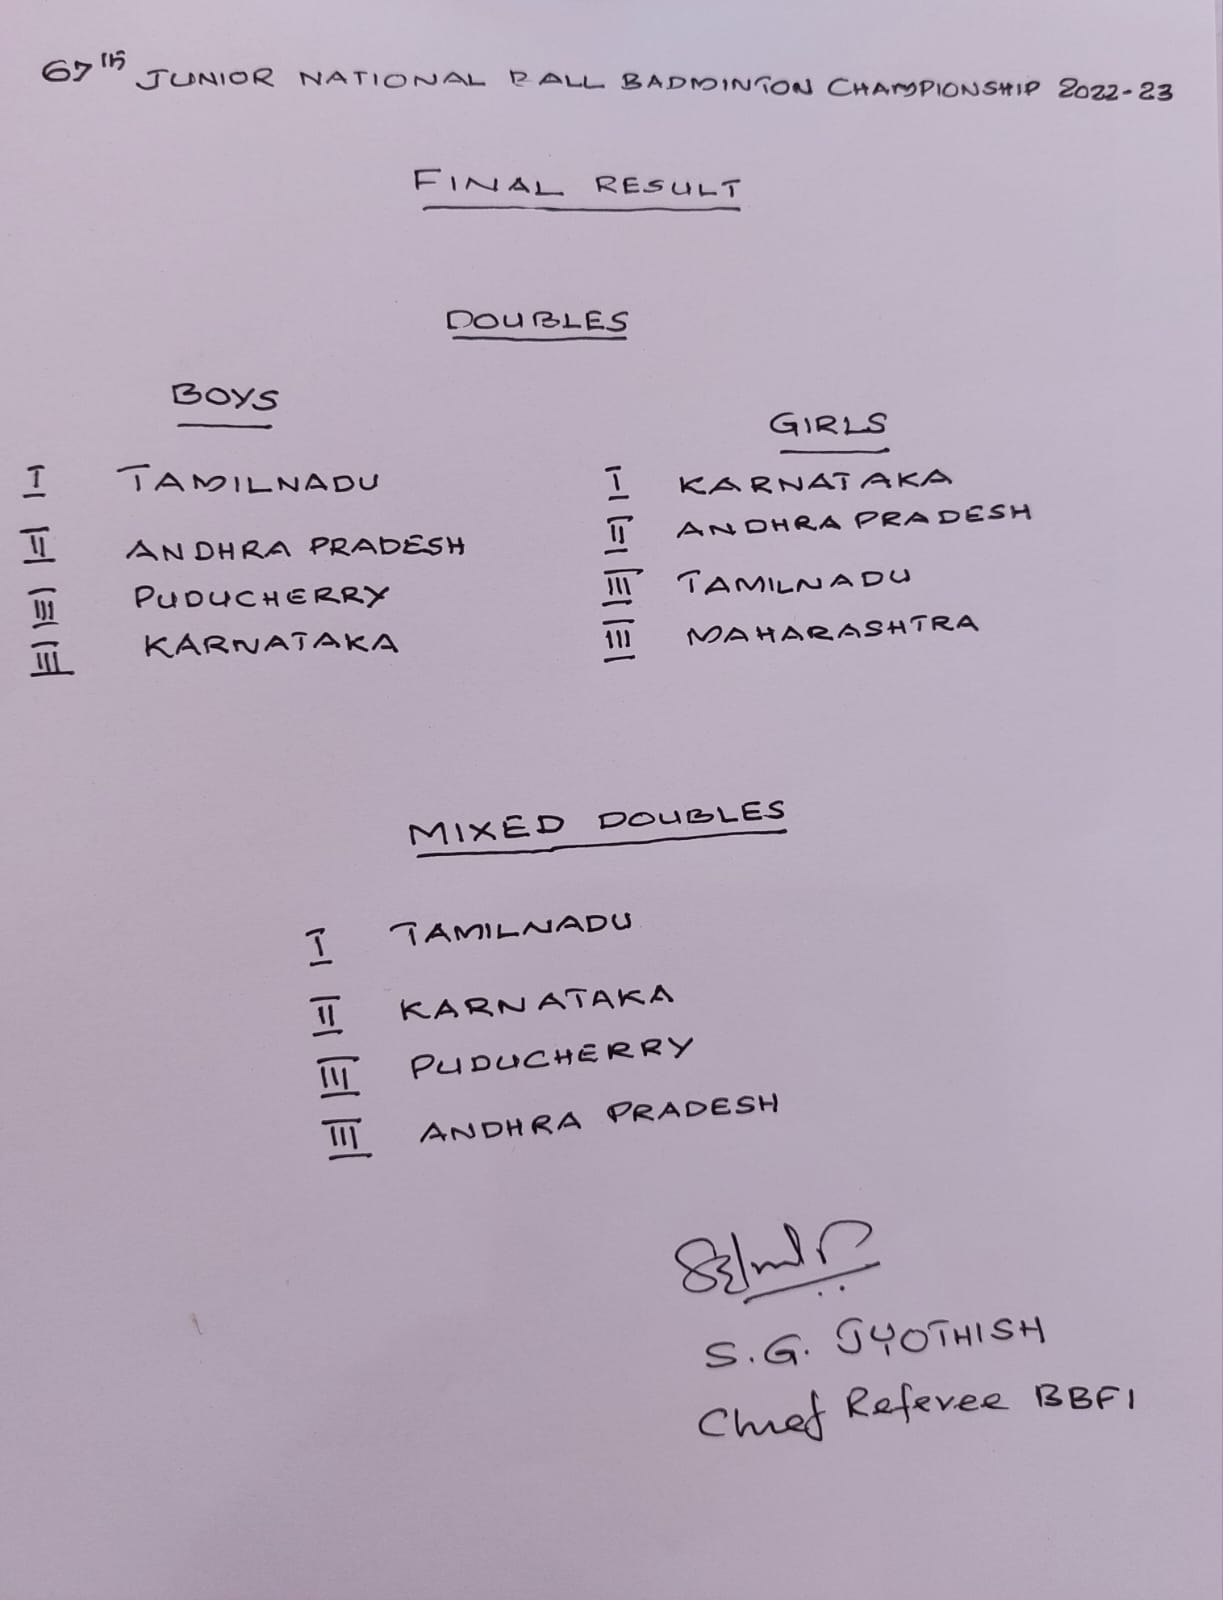 67th JUNIOR NATIONAL BALL BADMINTON CHAMPIONSHIP 2022-23
FINAL RESULT
DOUBLES
BOYS
I TAMILNADU
II ANDHRA PRADESH
III PUDUCHERRY
III KARNATAKA
GIRLS
I KARNATAKA
II ANDHRA PRADESH
III TAMILNADU
III MAHARASHTRA
MIXED DOUBLES
I TAMILNADU
II KARNATAKA
III PUDUCHERRY
III ANDHRA PRADESH
S.G. JYOTHISH
Chief Referee BBFI